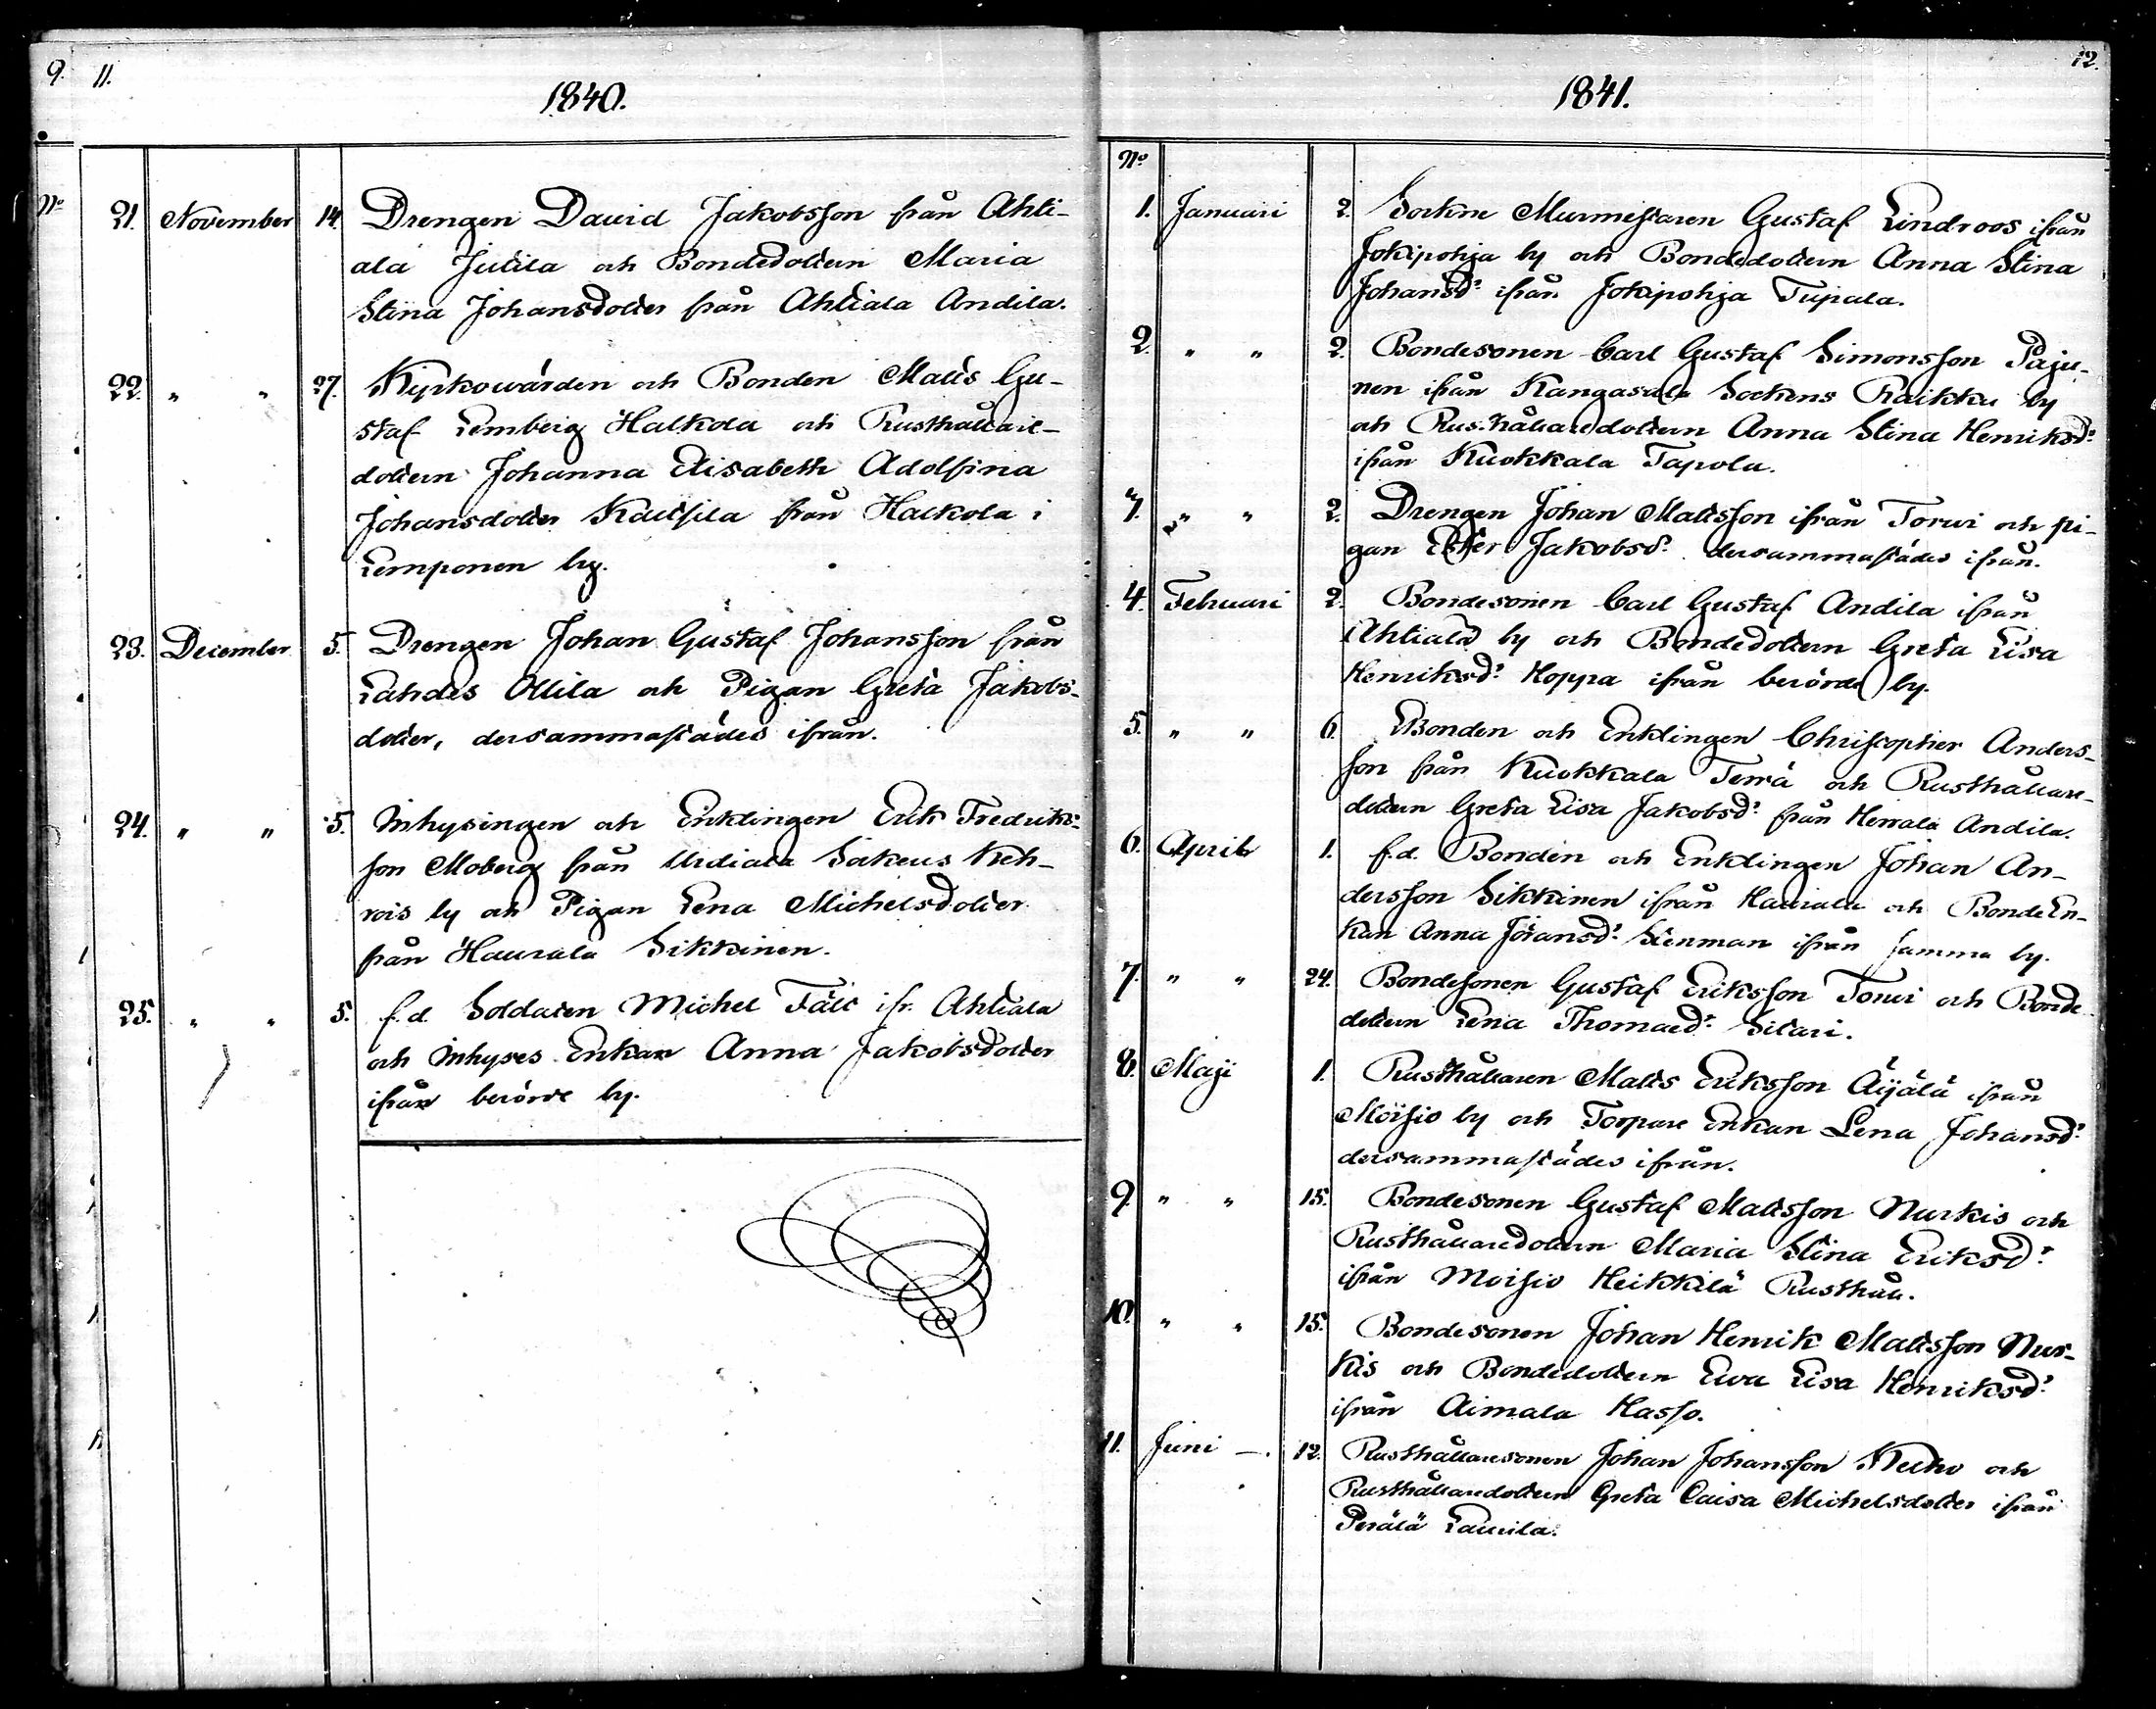 9. 11.
1840.
No 21. November 14. Drengen David Jakobsson från Ahti-
ala Jutila och Bondedottern Maria
Stina Johansdotter från Ahtiala Andila.
22. " " 27. Kyrkowärden och Bonden Matts Gu-
staf Lemberg Halkola och Rusthållare-
dottern Johanna Elisabeth Adolfina
Johansdotter från Halkola i
Lemponen by.
23. December 5. Drengen Johan Gustaf Johansson från
Lahdes Ollila och Pigan Greta Jakobs-
dotter, dersammastädes ifrån.
24. " " 5. Inhysingen och Enklingen Erik Fredriks-
son Moberg från Urdiala Sockens Keh-
rois by och Pigan Lena Michelsdotter
från Haurala Sikkinen.
25. " " 5. f.d. Soldaten Michel Fält ifr. Ahtiala
och Inhyses Enkan Anna Jakobsdotter
ifrån berörde by.
12.
1841.
No
1. Januari 2. Sockne Murmestaren Gustaf Lindroos ifrån
Jokipohja by och Bondedottern Anna Stina
Johansdr ifrån Jokipohja Tupala.
2. " " 2. Bondesonen Carl Gustaf Simonsson Paju-
nen ifrån Kangasala Sockens Raikku by
och Rusthållaredottern Anna Stina Henriksdr
ifrån Kuokkala Tapola.
" " 2. Drengen Johan Mattsson ifrån Torwi och pi-
gan Ester Jakobsdr dersammastädes ifrån.
4. Februari 2. Bondesonen Carl Gustaf Andila ifrån
Ahtiala by och Bondedottern Greta Lisa
Henriksdr Hoppa ifrån berörde by.
5. " " 6. Bonden och Enklingen Christopher Anders-
son från Kuokkala Terrä och Rusthållare-
dottern Greta Lisa Jakobsdr från Herrala Andila.
6. April 1. f.d. Bonden och Enklingen Johan An-
dersson Sikkinen ifrån Haurala och BondeEn-
kan Anna Johansdr Stenman ifrån samma by.
7. " " 24. Bondesonen Gustaf Eriksson Torwi och Bonde
dottern Lena Thomasdr Sitari.
8. Maji 1. Rusthållaren Matts Eriksson Äijälä ifrån
Moisio by och Torpare Enkan Lena Johansdr
dersammastädes ifrån.
9. " " 15. Bondesonen Gustaf Mattsson Nurkis och
Rusthållaredottern Maria Stina Eriksdr
ifrån Moisio Heikkilä Rusthåll.
10. " " 15. Bondesonen Johan Henrik Mattsson Nur-
kis och Bondedottern Ewa Lisa Henriksdr
ifrån Aimala Hasso.
11. Juni —. 12. Rusthållaresonen Johan Johansson och
Rusthållaredottern Greta Caisa Michelsdotter ifrån
Perälä Laurila.